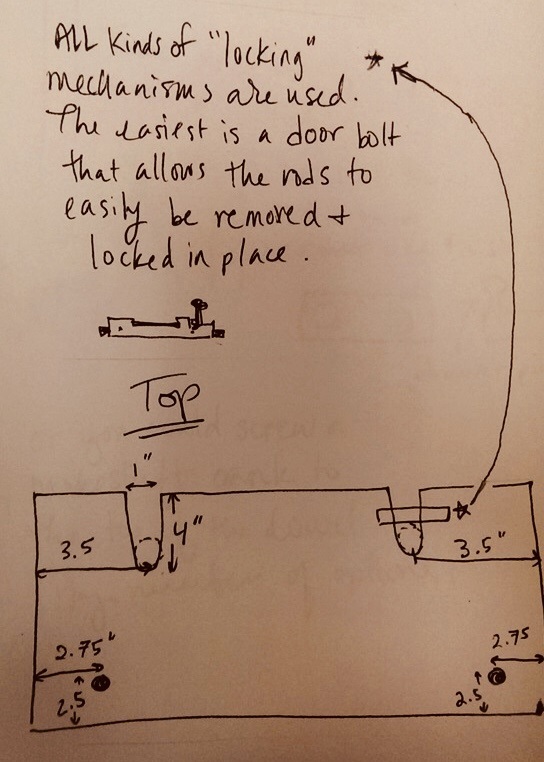 ALL kinds of "locking"
mechanisms are used.
The easiest is a door bolt
that allows the rods to
easily be removed +
locked in place.
Top
1"
4"
3.5
3.5"
2.75"
2.75
2.5
2.5